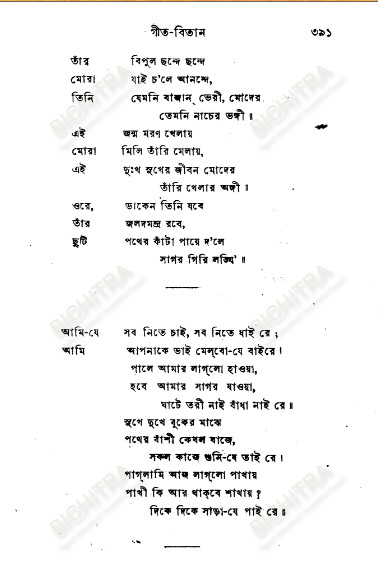 গীত-বিতান ৩৯১
তাঁর বিপুল ছন্দে ছন্দে
মোরা যাই চ'লে আনন্দে,
তিনি যেমনি বাজান্ ভেরী, মোদের
তেমনি নাচের ভঙ্গী॥
এই জন্ম মরণ খেলায়
মোরা মিলি তাঁরি মেলায়,
এই দুঃখ সুখের জীবন মোদের
তাঁরি খেলার অঙ্গী॥
ওরে, ডাকেন তিনি যবে
তাঁর জলদমন্দ্র রবে,
ছুটি পথের কাঁটা পায়ে দ'লে
সাগর গিরি লঙ্ঘি'॥
আমি-যে সব নিতে চাই, সব নিতে ধাই রে;
আমি আপনাকে ভাই মেল্‌বো-যে বাইরে।
পালে আমার লাগ্‌লো হাওয়া,
হবে আমার সাগর যাওয়া,
ঘাটে তরী নাই বাঁধা নাই রে॥
সুখে দুখে বুকের মাঝে
পথের বাঁশী কেবল বাজে,
সকল কাজে শুনি-যে তাই রে।
পাগ্‌লামি আজ লাগ্‌লো পাখায়
পাখী কি আর থাক্‌বে শাখায়?
দিকে দিকে সাড়া-যে পাই রে॥
BICHITRA
BICHITRA
BICHITRA
BICHITRA
BICHITRA
BICHITRA